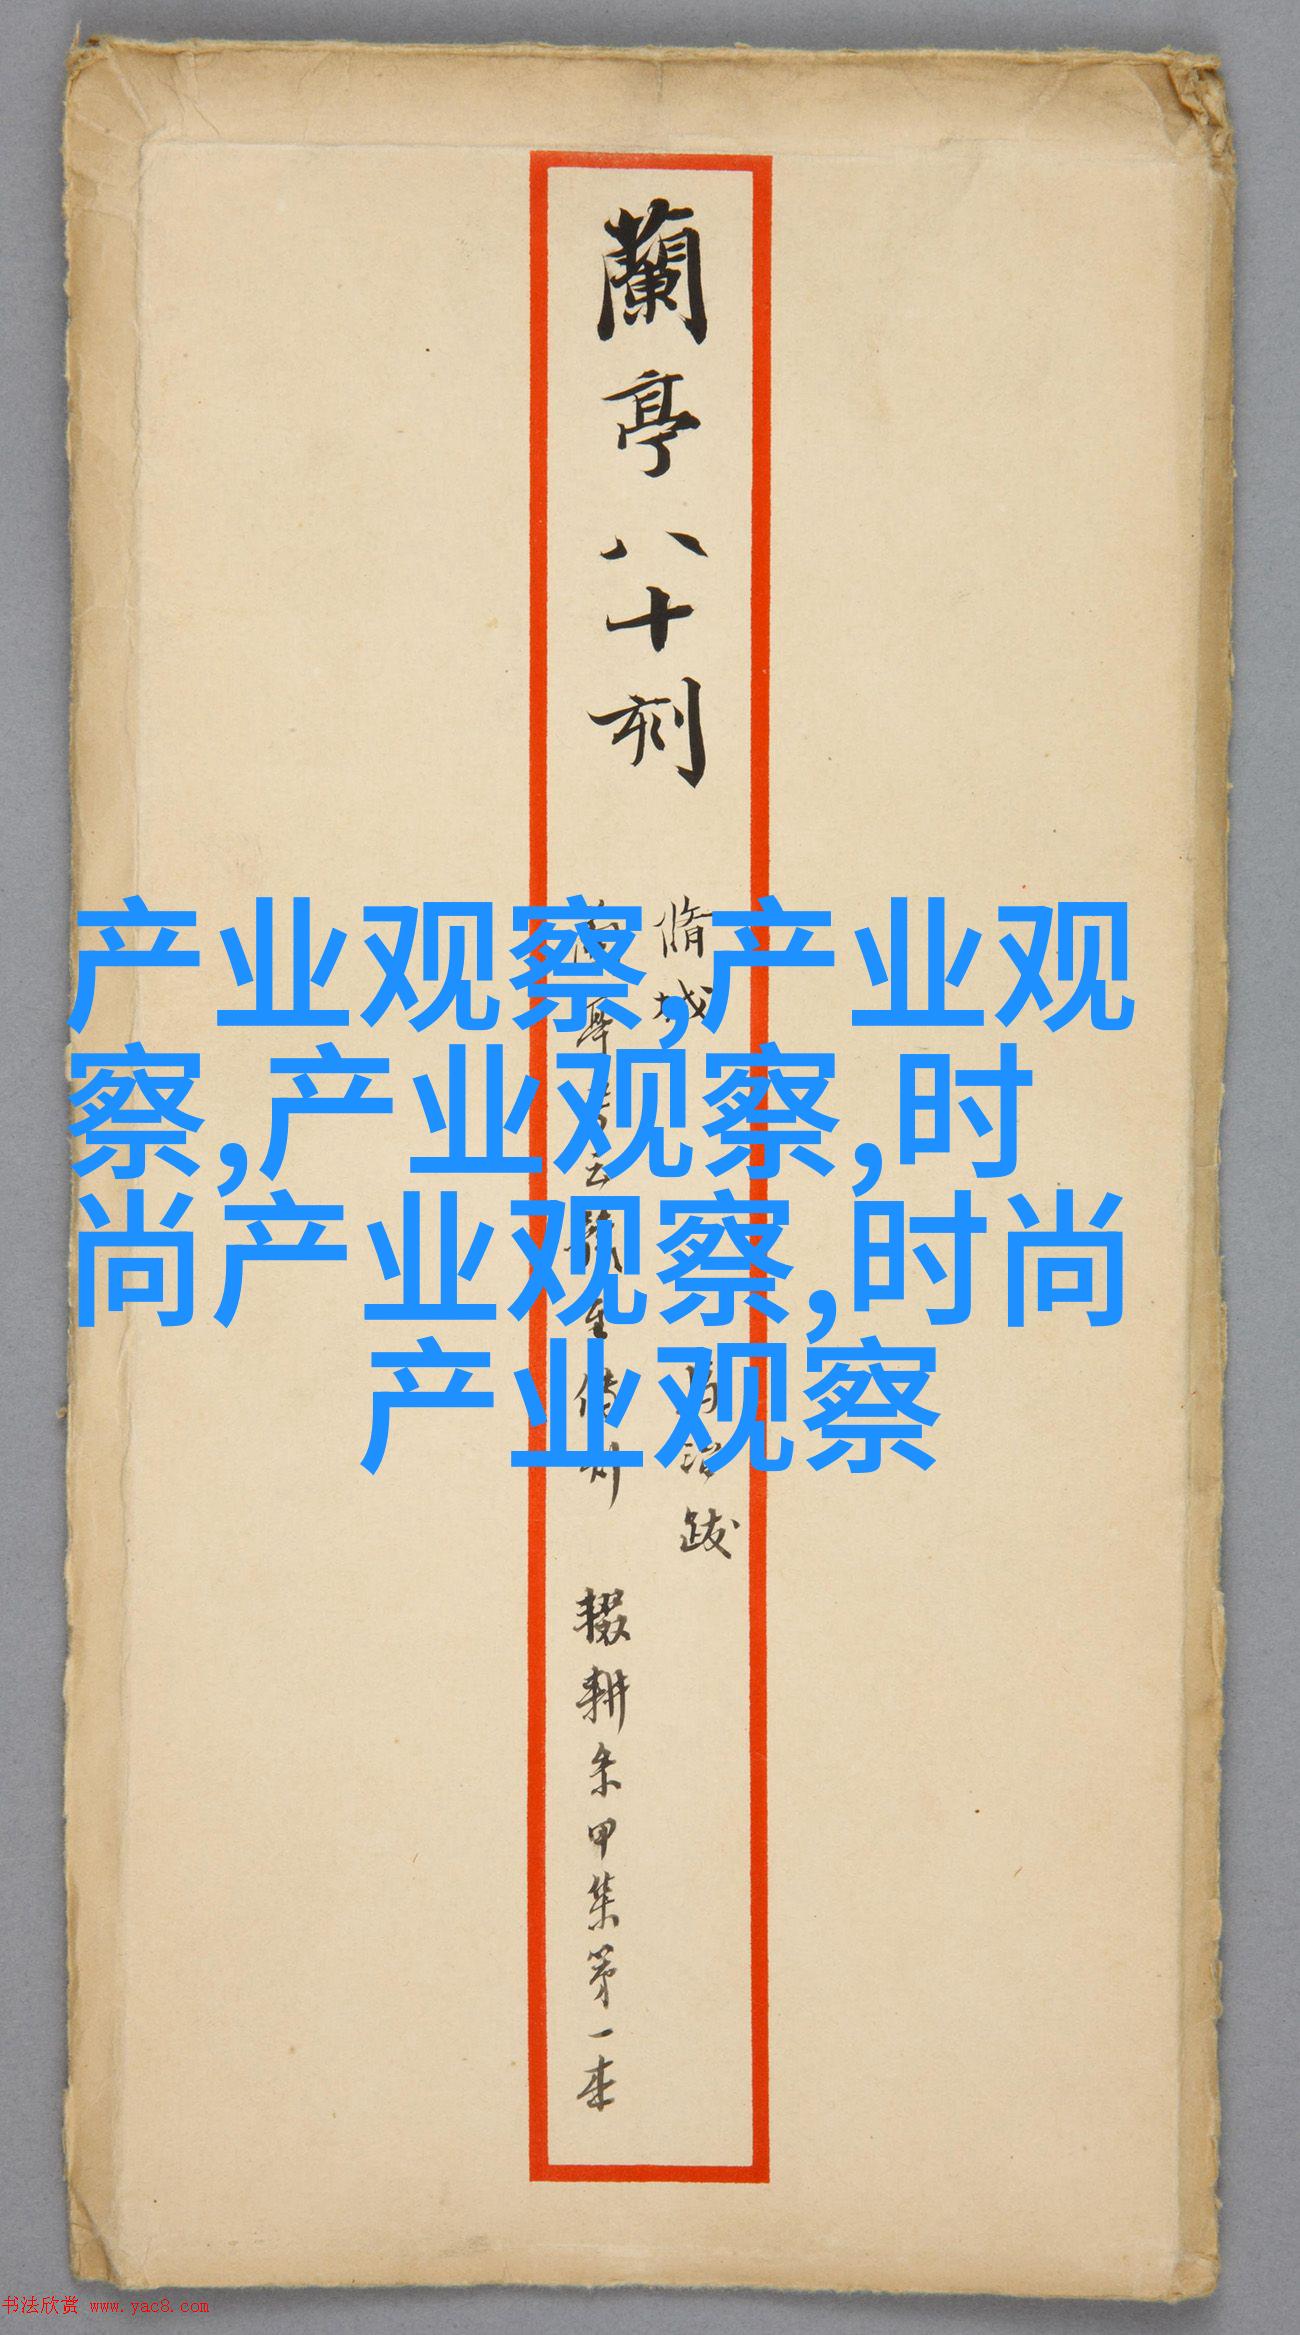 蘭亭八十刻
脩城
馮治跋
至傳刻
輟耕朱甲集第一本
产业观察,产业观
察,产业观察,时
尚产业观察,时尚
产业观察
书法欣赏 www.yac8.com